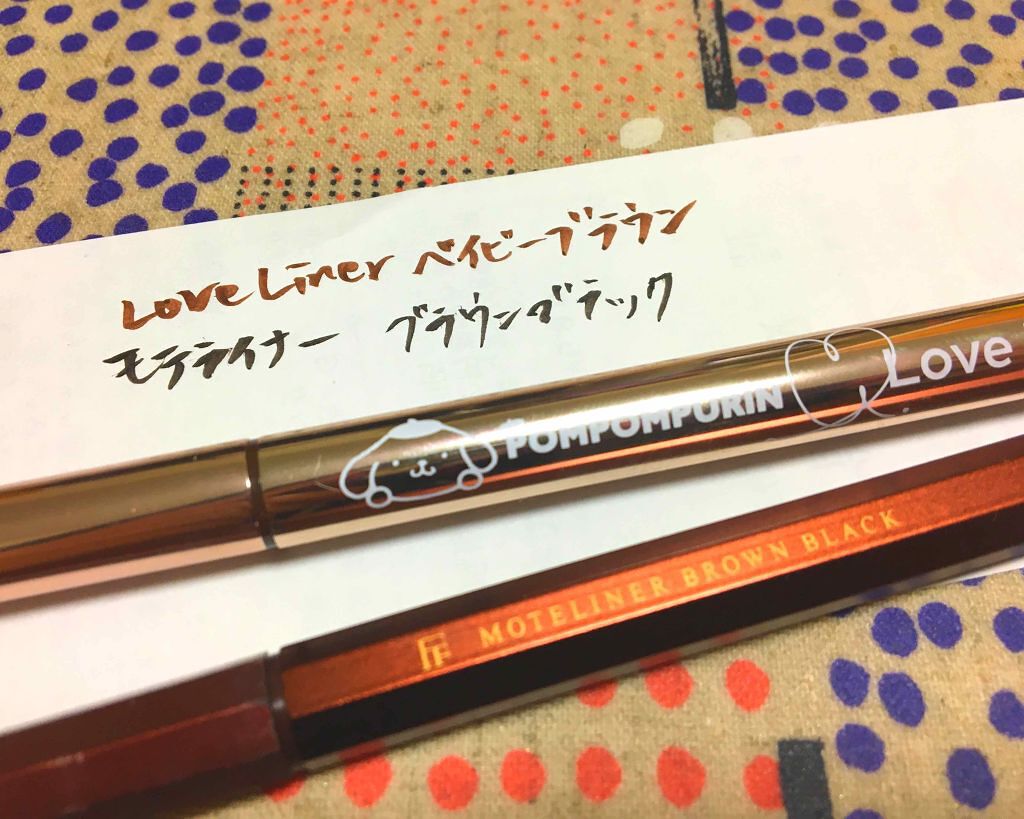 Love Liner ベイビーブラウン
モテライナー ブラウンブラック
POMPOMPURIN Love
FF MOTELINER BROWN BLACK